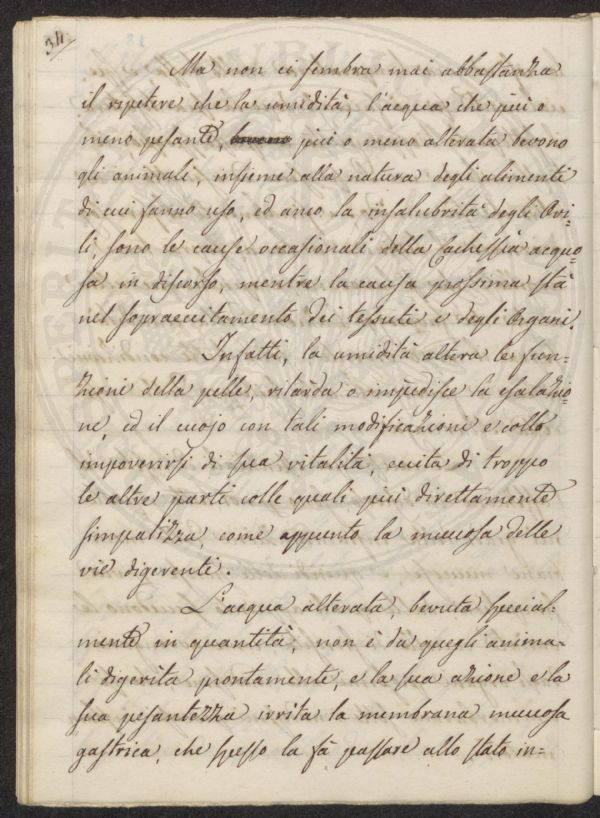 34.
Ma non ci sembra mai abbastanza
il ripetere che la umidità, l'acqua che più o
meno pesante, più o meno alterata bevono
gli animali, insieme alla natura degli alimenti
di cui fanno uso, ed anco la insalubrità degli Ovi-
li, sono le cause occasionali della Cachessia acquo-
sa in discorso, mentre la causa prossima stà
nel sopraeccitamento dei tessuti e degli Organi.
Infatti, la umidità altera le fun-
zioni della pelle, ritarda o impedisce la esalazio-
ne, ed il cuojo con tali modificazioni e collo
impoverirsi di sua vitalità, eccita di troppo
le altre parti colle quali più direttamente
simpatizza, come appunto la mucosa delle
vie digerenti.
L'acqua alterata, bevuta special-
mente in quantità, non è da quegli anima-
li digerita prontamente, e la sua azione e la
sua pesantezza irrita la membrana mucosa
gastrica, che spesso la fà passare allo stato in=